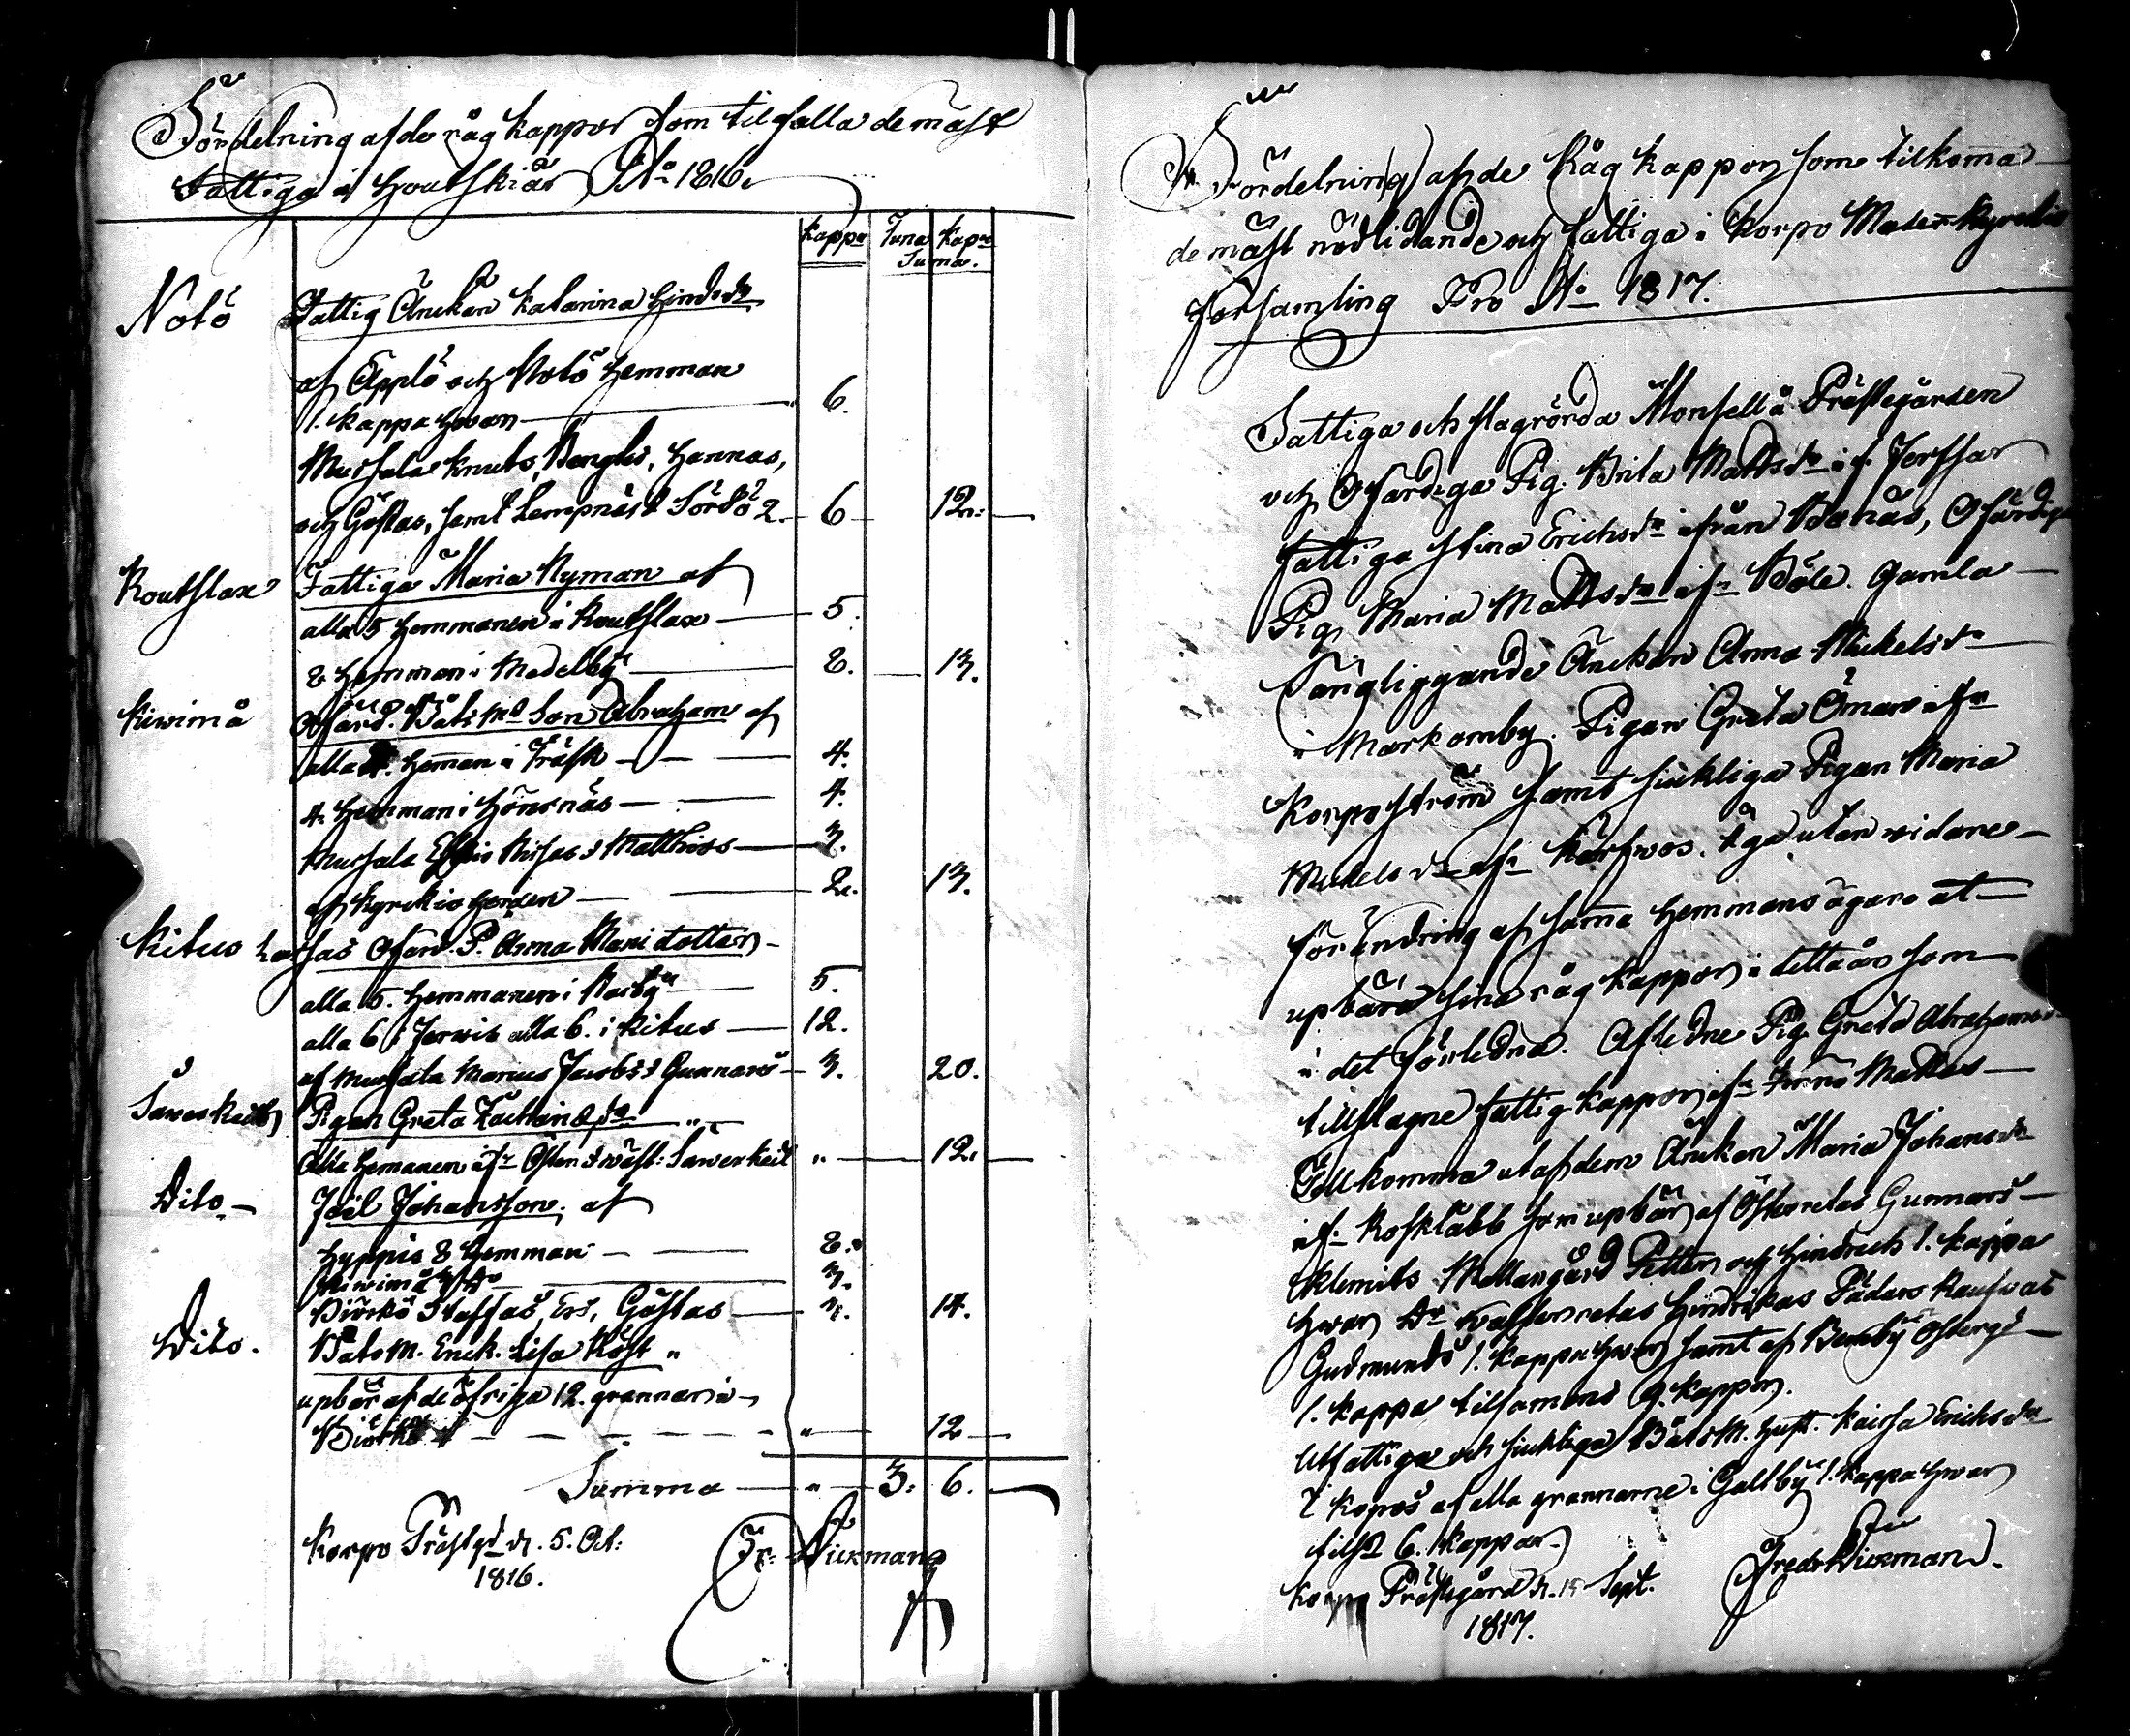 Fördelning af de råg kappor som tilfalla de mäst
Fattiga i Houtskiär A:o 1816.
Kappr Tuna Kapr
Suma.
Notö Fattig Änckan Katarina Hindr dr
af Äpplö och Notö Hemman
1. Kappa hwar 6.
Mussala Knuts, Bengts, Hannas,
och Göstas, samt Lempnäs & Sördö 2. 6 12.
Routslax Fattiga Maria Nyman af
alla 5 Hemmanen i Routslax 5.
8 Hemman i Medelby 8. 13.
Kiwimå Ofärd. Båtsmd Son Abraham af
alla 4. Hemman i Träsk 4.
4. Hemman i Hönsnäs 4.
Mussala Eskis Nissas & Matthiss 3.
af Kyrckio herden 2. 13.
Kitus Lassas Ofärd. P. Anna Maria dotter
alla 5. Hemmanen i Norby 5.
alla 6 i Jerwis alla 6. i Kitus 12.
af Mussala Marcus Jacobs & Gunnars 3. 20.
Sawerkeit Pigan Greta Zachrisdr „
Alla Hemanen ifr Östen & wäst: Sawerkeit „ 12.
Dito. Joel Johansson. af
Hyppis 8 Hemman 8.
Kiwimå 3 Do 3.
Biörkö Staffas, Ers, Göstas 3. 14.
Dito. Båtsm. Erick. Lisa Röst „
upbär af de öfriga 12. grannar i
Biörkö „ 12
Summa „ 3: 6.
Korpo Prästgd d. 5. Oct:
1816.
Fr: Wickman

Fördelning af de Råg kappor som tilkoma
de mäst nödlidande och fattiga i Korpo Moder Kyrckio
församling Pro A:o 1817.
Fattiga och slagrörda Monsell å Prästegården
och Ofärdiga Pig. Brita Mattsdr i f. Jerssar
fattiga Stina Erichsdr ifrån Bonäs, Ofärdiga
Pig. Maria Mattsdr ifr Böle. Gamla
Sängliggande Änckan Anna Mickelsdr
i Markomby. Pigan Greta Öman ifr
Korpoström samt siukliga Pigan Maria
Mickels dr ifr Kärfwos. äga utan widare
förändring af samma Hemmans ägare at
upbära sina råg kappor i detta år som
i det förledna. Afledne Pig. Greta Abrahamsdr
tillslagne fattig kappor ifr Finnö Mattas
Tillkomma utaf dem Änckan Maria Johansdr
ifr Rosklabb som upbär af Österretas Gunnars
Klemits Mellangård Petter och Hindrich 1. kappa
hwar Do Wästerretas Hindrikas Pädars
Gudmunds 1. kappa hwar samt af Bemby Östergd
1. kappa tilsamens 9. kappor.
Utfattiga och siukliga Båtsm. hust. Kaisa Erichsdr
af alla grannarne i Galtby 1. kappa hwar
tilsa 6. Kappor.
Korpo Prästegård d. 15 Sept.
1817.
Fredr Wickman.